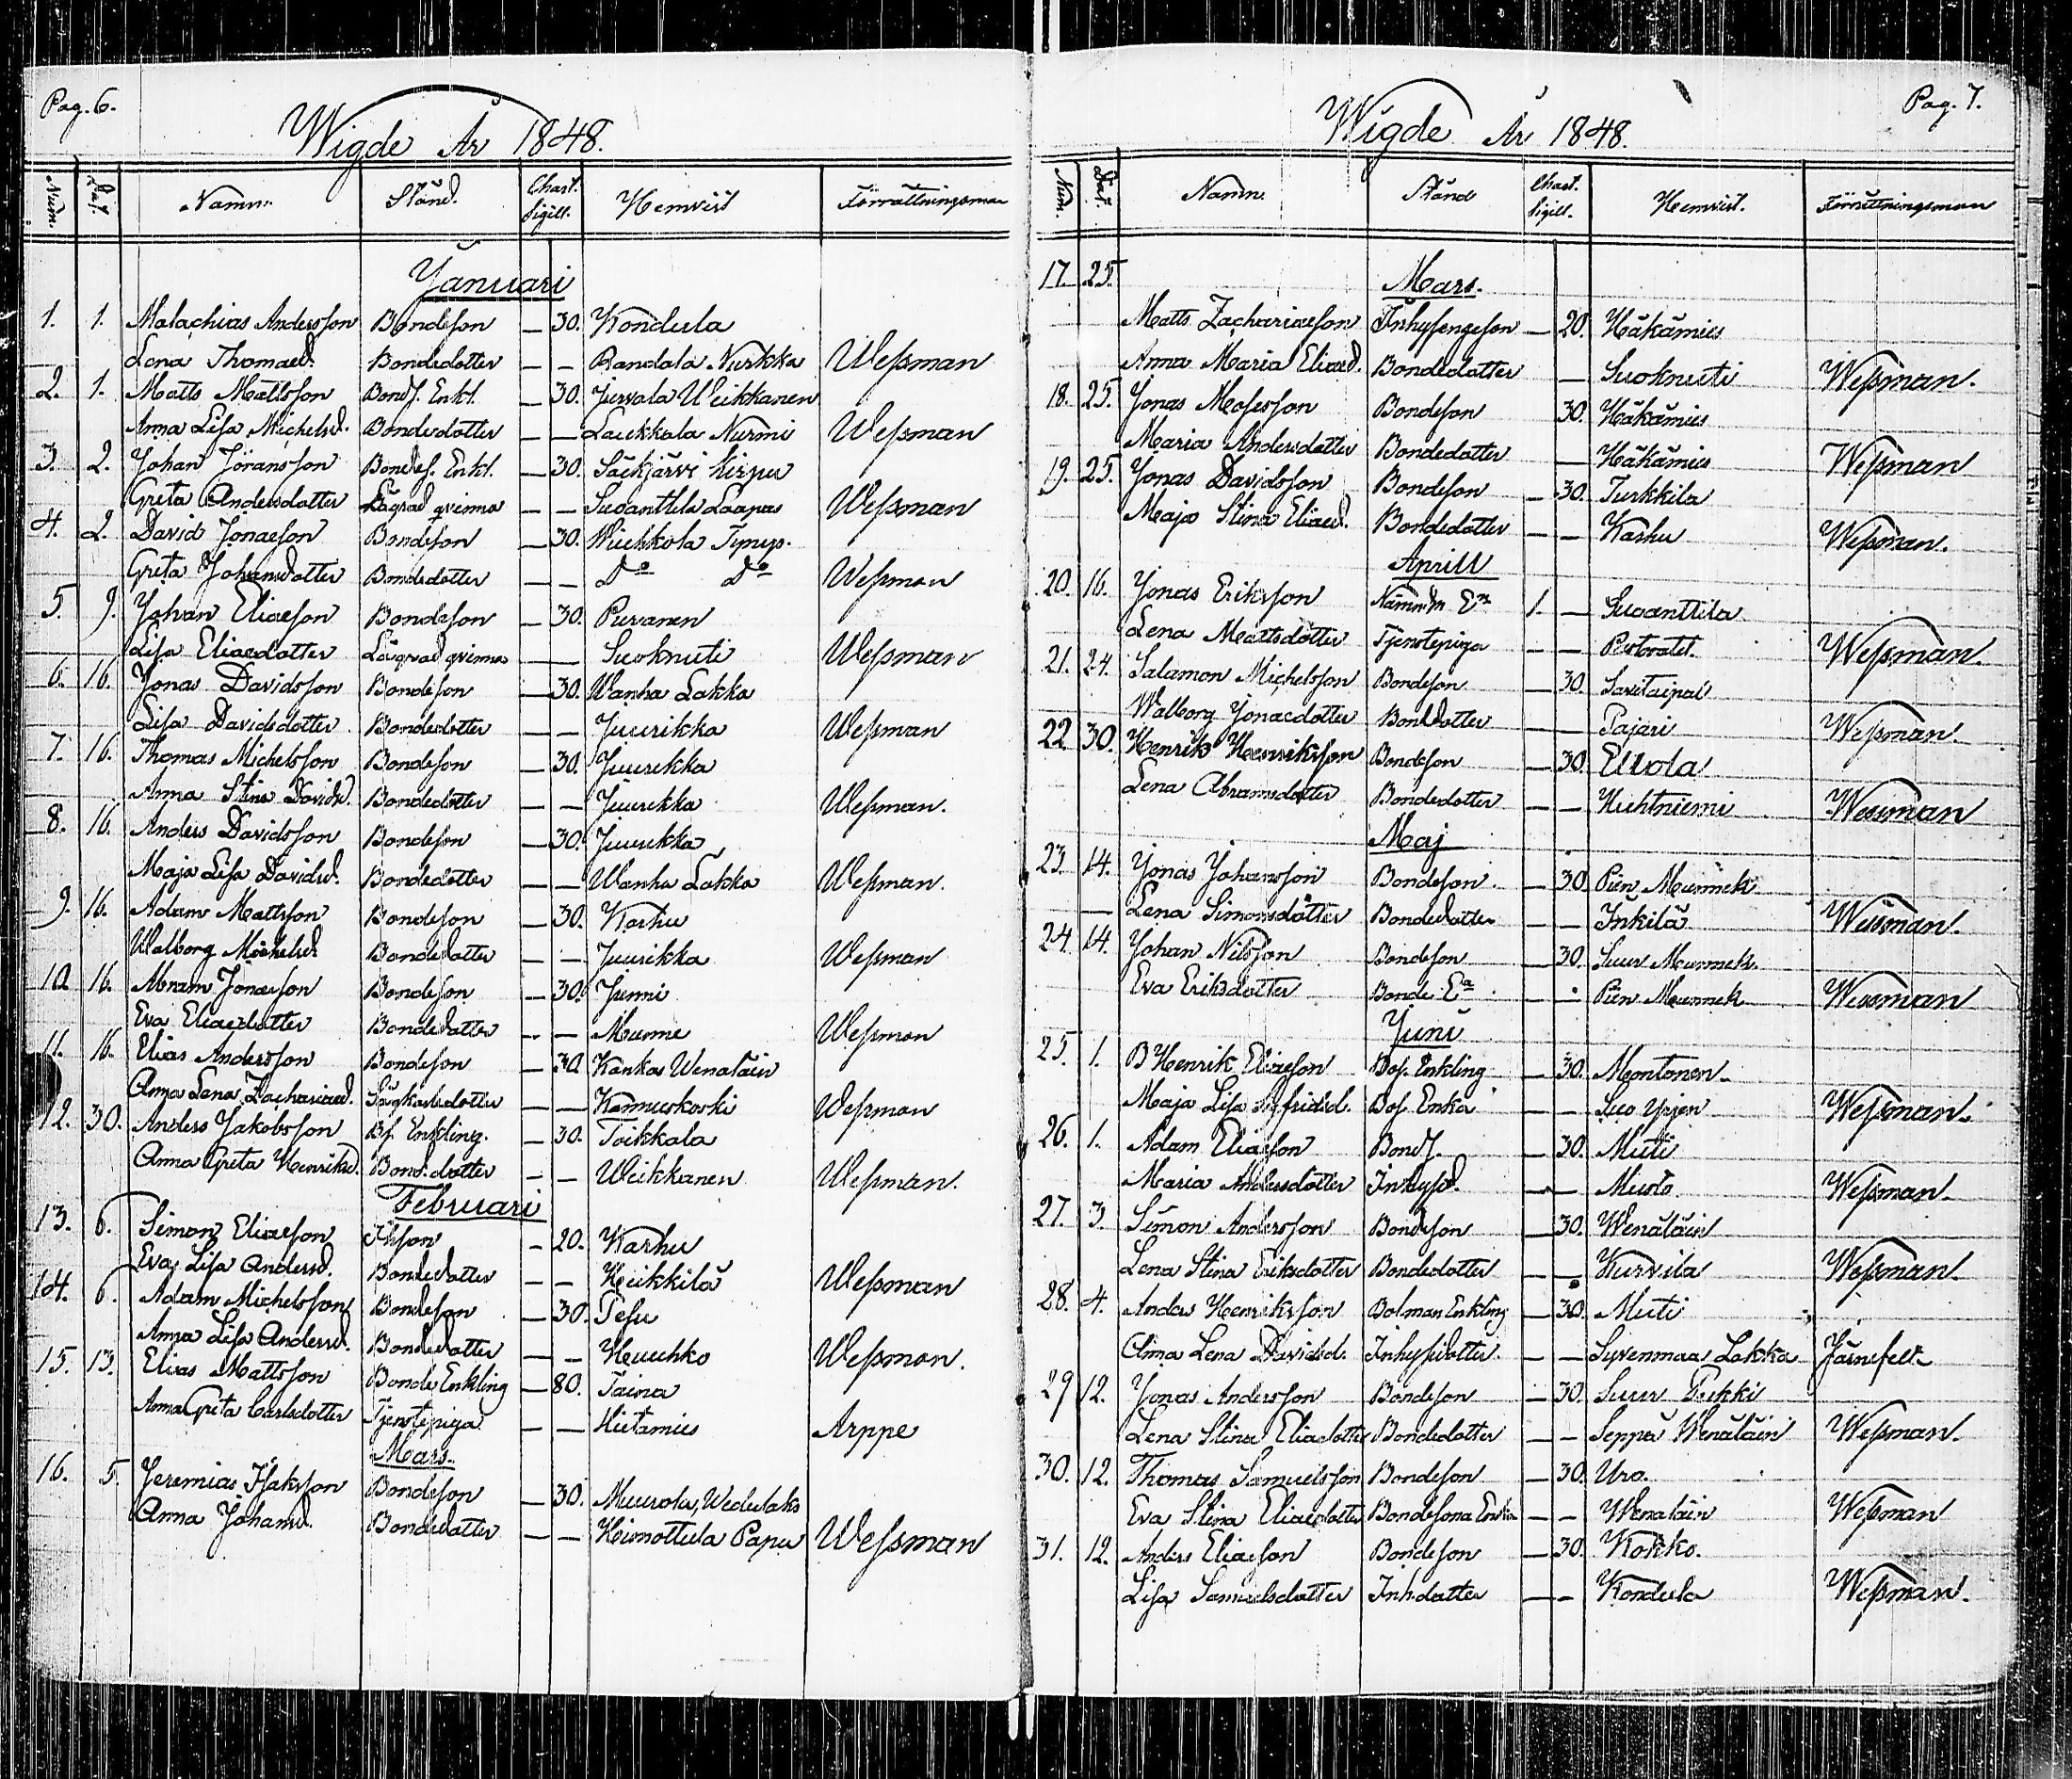 Pag. 6.
Wigde År 1848.
Num. Dat. Namn. Stånd. Chart. Sigill. Hemvist Förrättningsman
Januari
1. 1. Malachias Andersson Bondeson — 30. Kondula
Lena Thomasd. Bondedotter — — Randala Nurkka Wessman
2. 1. Matts Mattsson Bonds. Enkl. — 30. Jurvala Weikkanen
Anna Lisa Michelsd. Bondedotter — — Laukkala Nurmi Wessman
3. 2. Johan Jöransson Bondes. Enkl. — 30. Säckjärvi Kirpu
Greta Andersdotter Lägrad qvinna — — Suoanttila Laapas Wessman
4. 2. David Jonasson Bondeson — 30. Wiuhkola
Greta Johansdotter Bondedotter — — Do Do Wessman
5. 9. Johan Eliasson Bondeson — 30. Puranen
Lisa Eliasdotter Lägrad qvinna — — Suoknuti Wessman
6. 16. Jonas Davidsson Bondeson — 30. Wanha Lakka
Lisa Davidsdotter Bondedotter — — Juurikka Wessman
7. 16. Thomas Michelsson Bondeson — 30. Juurikka
Anna Stina Davidsd. Bondedotter — — Juurikka Wessman.
8. 16. Anders Davidsson Bondeson — 30. Juurikka
Maja Lisa Davidsd. Bondedotter — — Wanha Lakka Wessman.
9. 16. Adam Mattsson Bondeson — 30. Karhu
Walborg Michelsd Bondedotter — — Juurikka Wessman
10. 16. Abram Jonasson Bondeson — 30. Junni
Eva Eliasdotter Bondedotter — — Murme Wessman
11. 16. Elias Andersson Bondeson — 30. Kankas Wenäläin
Anna Lena Zachariasd. — — Kannuskoski Wessman
12. 30. Anders Jakobsson Bs. Enkling. — 30. Toikkala
Anna Greta Henriksd. Bond.dotter — — Weikkanen Wessman.
Februari
13. 6. Simon Eliasson Ihson — 20. Karhu
Eva Lisa Andersd. Bondedotter — — Heikkilä Wessman
14. 6. Adam Michelsson Bondeson — 30. Pesu
Anna Lisa Andersd. Bondedotter — — Huuhko Wessman.
15. 13. Elias Mattsson Bonde Enkling — 80. Taina
Anna Greta Carlsdotter Tjenstepiga — — Hietamies Arppe
Mars.
16. 5. Jeremias Isaksson Bondeson — 30. Muurola, Wedulaks
Anna Johansd. Bondedotter — — Heimottula Papu Wessman
Pag. 7.
Wigde År 1848.
Num. Dat. Namn. Stånd Chart. Sigill. Hemvist. Förrättningsman
17. 25. Mars.
Matts Zachariasson Inhysingeson — 20. Häkämies
Anna Maria Eliasd. Bondedotter — Suoknuti Wessman.
18. 25. Jonas Mosesson Bondeson 30. Häkämies
Maria Andersdotter Bondedotter — Häkämies Wessman
19. 25. Jonas Davidsson Bondeson — 30. Turkkila
Maja Stina Eliasd. Bondedotter — — Karhu Wessman.
Aprill
20. 16. Jonas Eriksson Nämndm En 1. — Suoanttila
Lena Mattsdotter Tjenstepiga — — Pastoratet. Wessman.
21. 24. Salamon Michelsson Bondeson 30. Savitaipal
Walborg Jonasdotter Bondedotter — Pajari Wessman.
22. 30. Henrik Henriksson Bondeson — 30. Eliola
Lena Abramsdotter Bondedotter — — Huhtniemi Wessman
Maj
23. 14. Jonas Johansson Bondeson — 30. Pien Munnek.
— Lena Simonsdotter Bondedotter — — Inkilä Wessman.
24. 14. Johan Nilsson Bondeson — 30. Suur Munnek.
Eva Eriksdotter Bonde Ea — — Pien Munnek Wessman
Juni
25. 1. B Henrik Eliasson Bos. Enkling — 30. Montonen
Maja Lisa Sigfridsd. Bos. Enka — — Suo Yrjen Wessman.
26. 1. Adam Eliasson Bonds. — 30. Muti
Maria Andersdotter Inhysd. — — Musto Wessman.
27. 3. Simon Andersson Bondeson — 30. Wenäläin
Lena Stina Eriksdotter Bondedotter — — Kurvila Wessman.
28. 4. Anders Henriksson Bolman Enkling — 30. Muti
Anna Lena Davidsd. Inhysidotter — — Syvenmaa Lakka Järnefelt
29 12. Jonas Andersson Bondeson — 30. Suur Pukki
Lena Stina Eliasdotter Bondedotter — — Seppä Wenäläin Wessman.
30. 12. Thomas Samuelsson Bondeson — 30. Uro.
Eva Stina Eliasdotter Bondesons Enka — — Wenäläin Wessman
31. 12. Anders Eliasson Bondeson — 30. Kokko.
Lisa Samuelsdotter Inh.dotter — — Kondula Wessman.